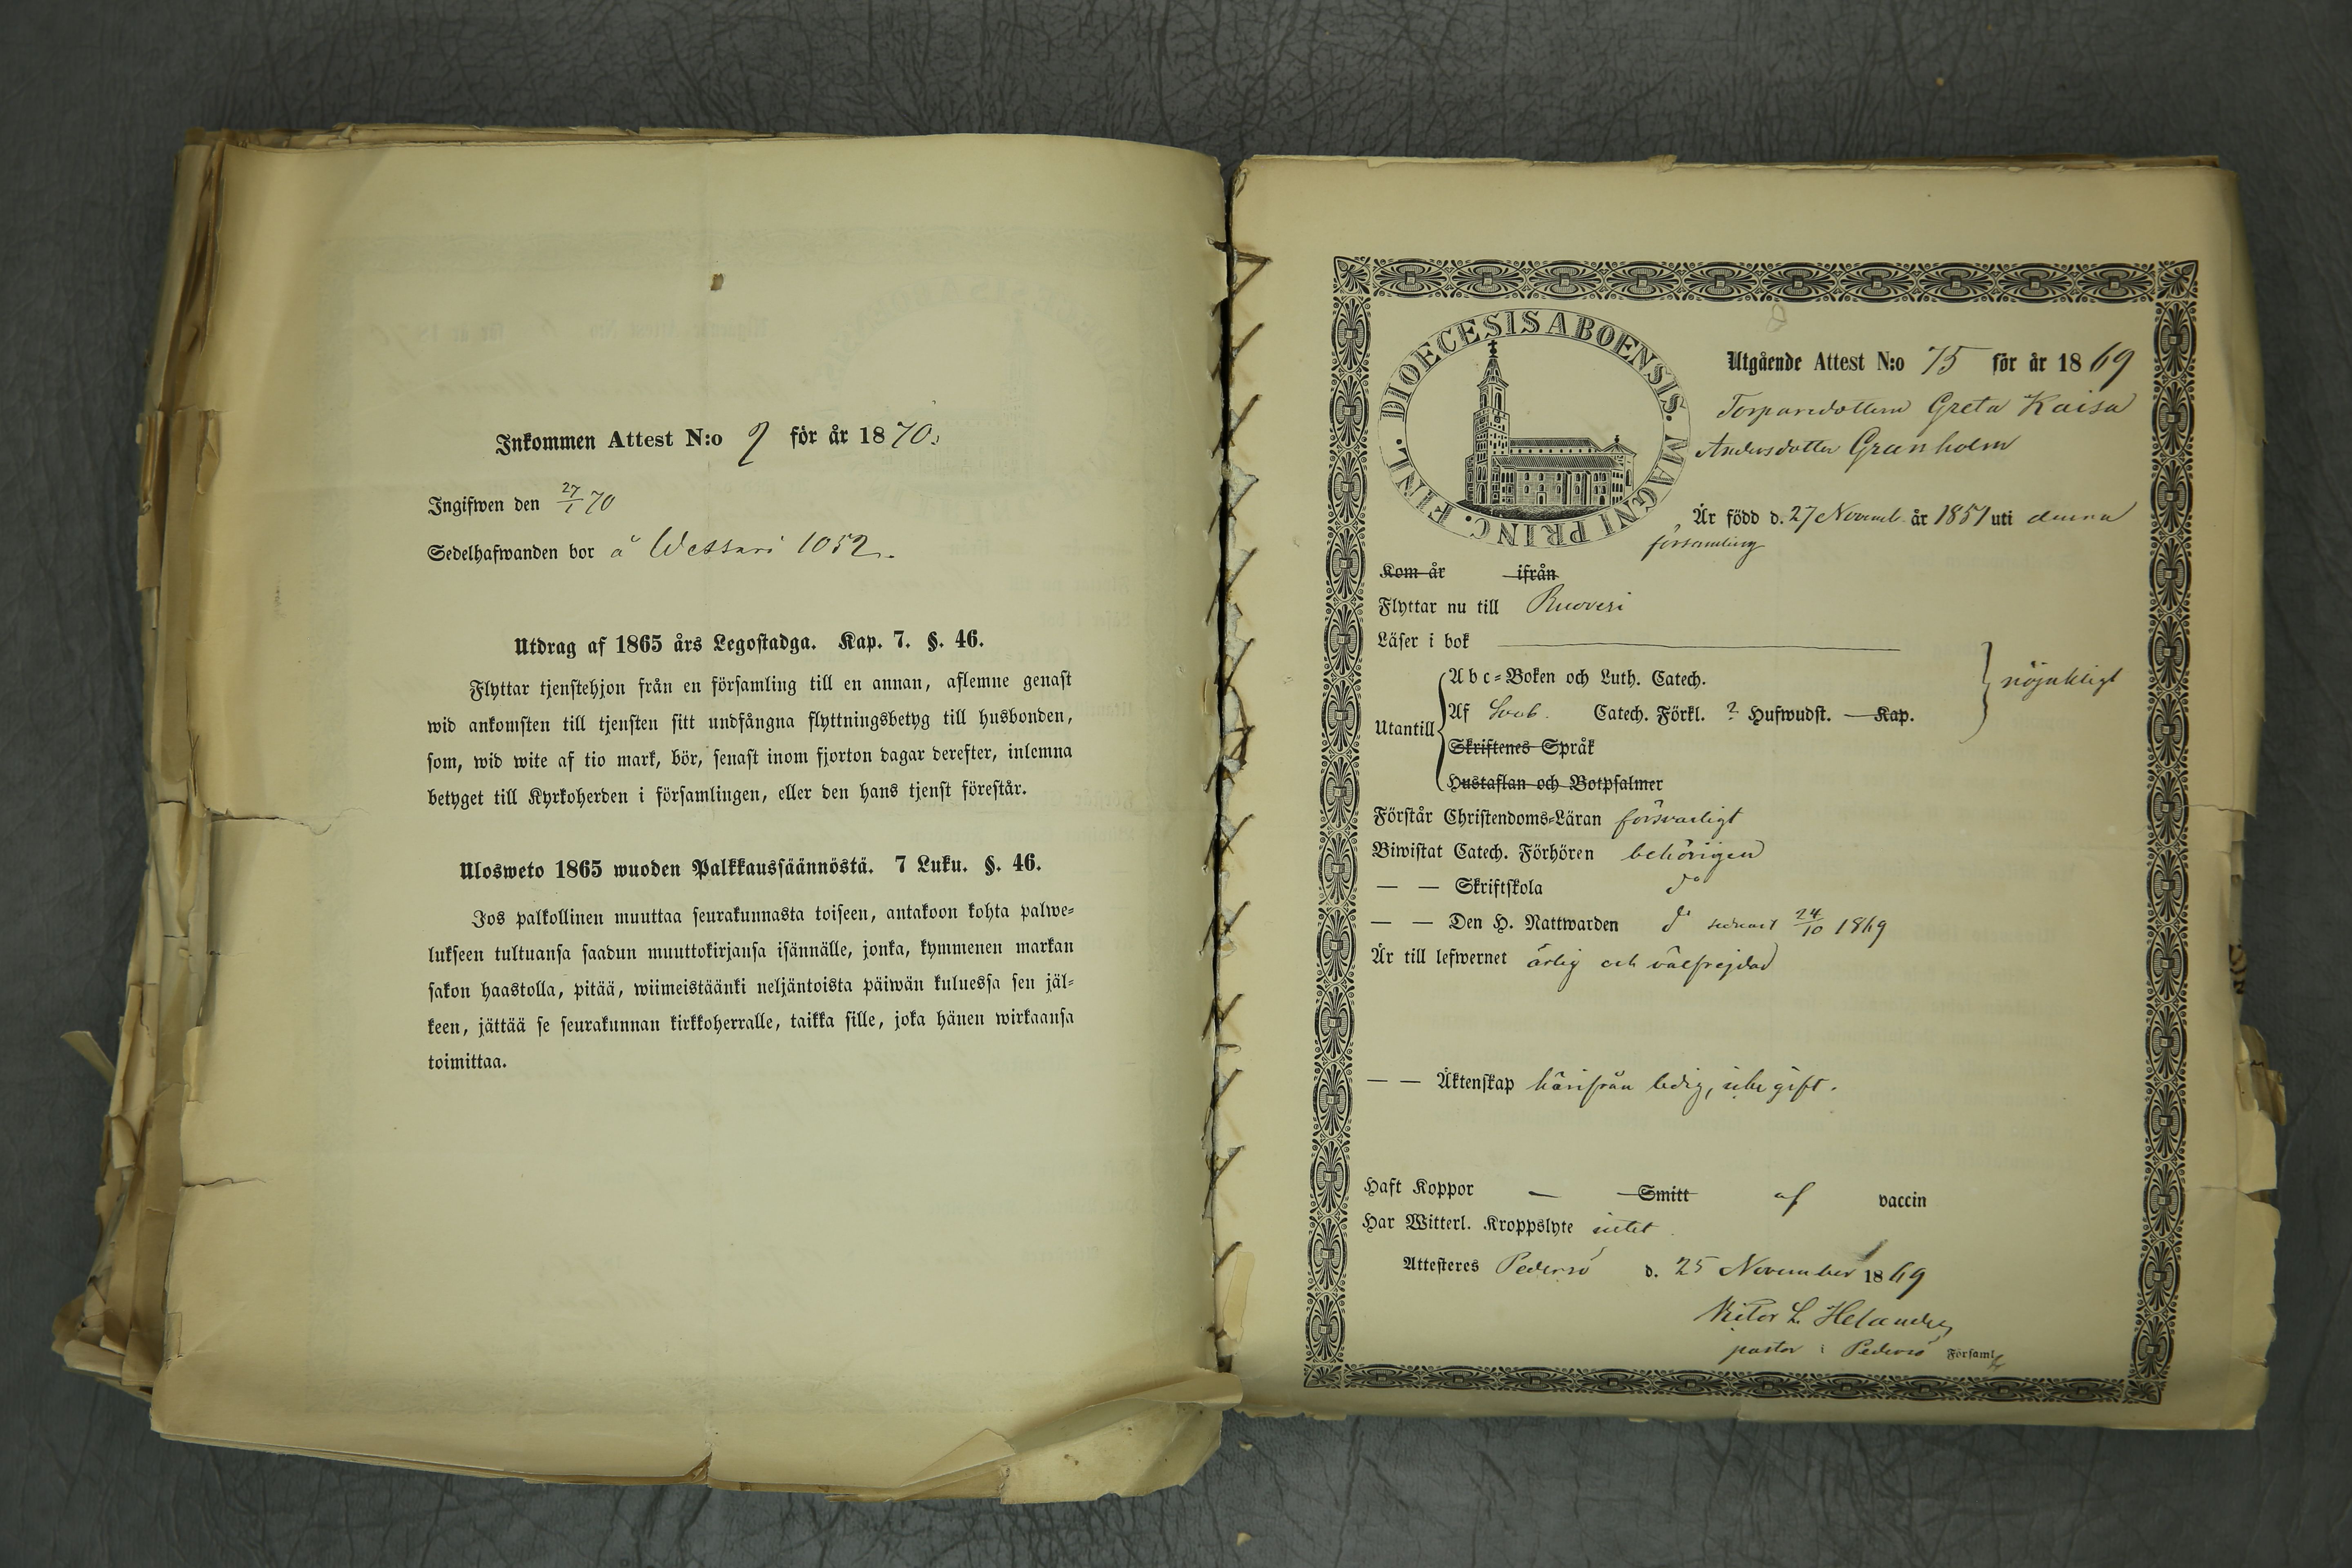 Inkommen Attest N:o 7 för år 1870.
Ingifwen den 27/1 70
Sedelhafwanden bor å Wessari 1052.
Utdrag af 1865 års Legostadga. Kap. 7. §. 46.
Flyttar tjenstehjon från en församling till en annan, aflemne genast
wid ankomsten till tjensten sitt undfångna flyttningsbetyg till husbonden,
som, wid wite af tio mark, bör, senast inom fjorton dagar derefter, inlemna
betyget till Kyrkoherden i församlingen, eller den hans tjenst förestår.
Ulosweto 1865 wuoden Palkkaussäännöstä. 7 Luku. §. 46.
Jos palkollinen muuttaa seurakunnasta toiseen, antakoon kohta palwe-
lukseen tultuansa saadun muuttokirjansa isännälle, jonka, kymmenen markan
sakon haastolla, pitää, wiimeistäänki neljäntoista päiwän kuluessa sen jäl-
keen, jättää se seurakunnan kirkkoherralle, taikka sille, joka hänen wirkaansa
toimittaa.
DIOECESIS ABOENSIS. MAGNI PRINC. FINL.
Utgående Attest N:o 75 för år 1869
Torparedottern Greta Kaisa
Andersdotter Granholm
Är född d. 27 Novemb. år 1851 uti denna
församling
Kom år ifrån
Flyttar nu till Ruovesi
Läser i bok
Abc-Boken och Luth. Catech.
nöjaktigt
Utantill Af Sveb. Catech. Förkl. 2 Hufwudst. Kap.
Skriftenes Språk
Hustaflan och Botpsalmer
Förstår Christendoms-Läran försvarligt
Biwistat Catech. Förhören behörigen
— — Skriftskola do
— — Den H. Nattwarden do senast 24/10 1869
Är till lefwernet ärlig och välfrejdad
— — Äktenskap härifrån ledig, icke gift.
Haft Koppor — Smitt af vaccin
Har Witterl. Kroppslyte intet.
Attesteres Pedersö d. 25 November 1869
Viktor L. Helander
pastor i Pedersö Församl.